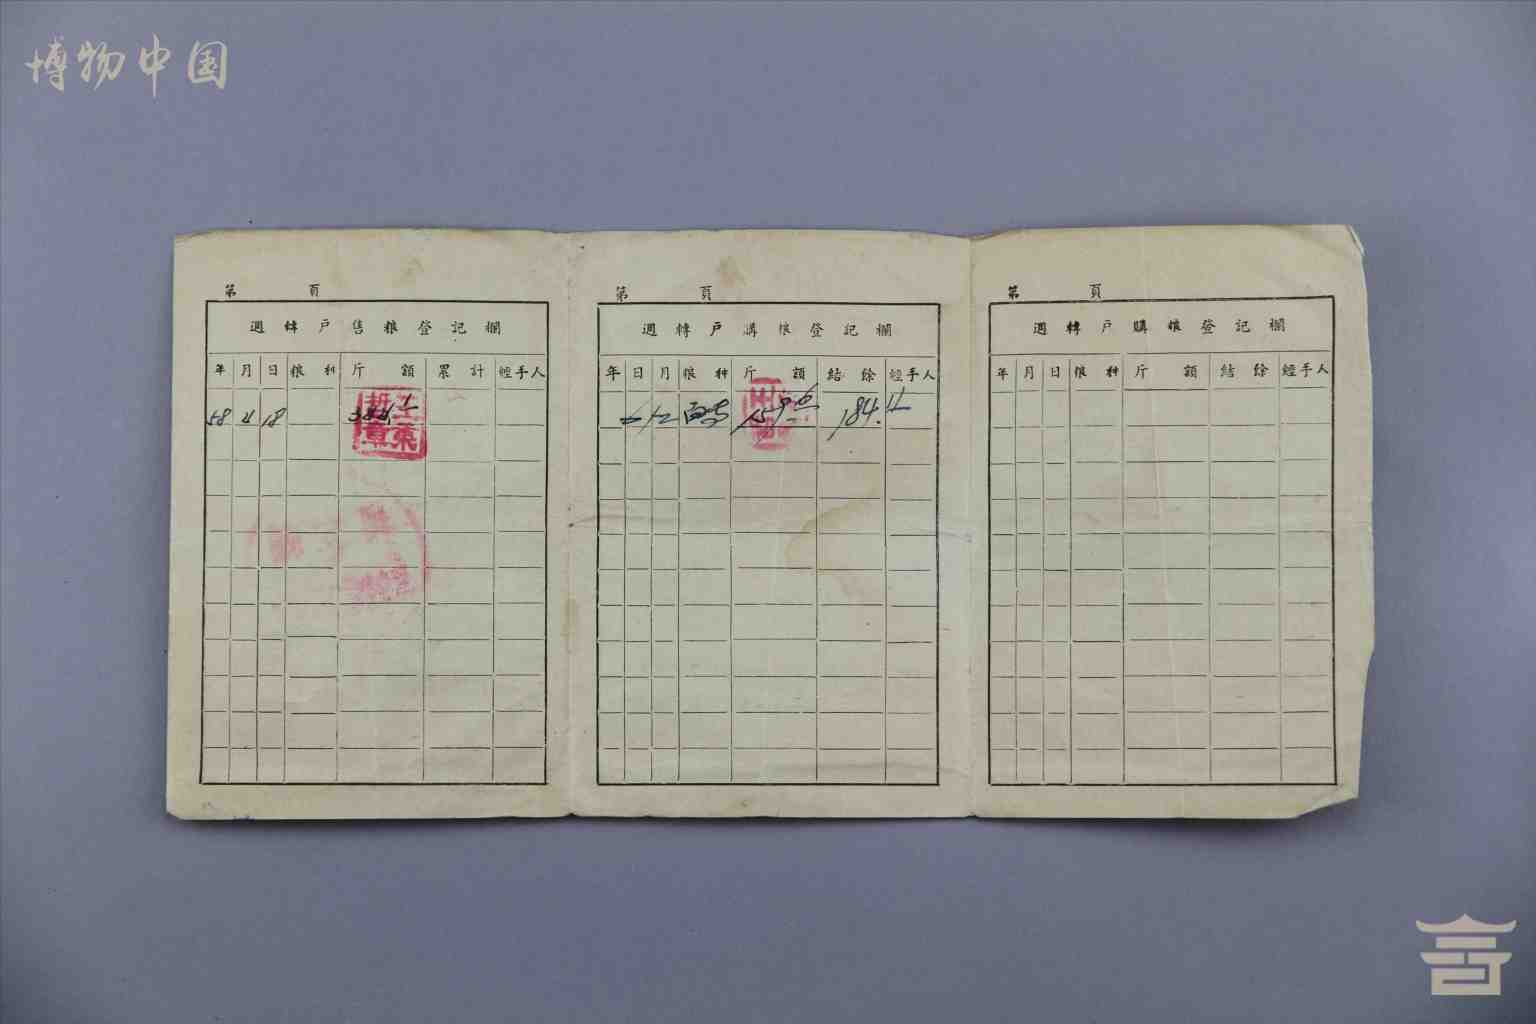 博物中国
第 頁
週轉戶售粮登記欄
年 月 日 粮种 斤額 累計 經手人
58 4 18
第 頁
週轉戶購粮登記欄
年 日 月 粮种 斤額 結餘 經手人
184.4
第 頁
週轉戶購粮登記欄
年 月 日 粮种 斤額 結餘 經手人